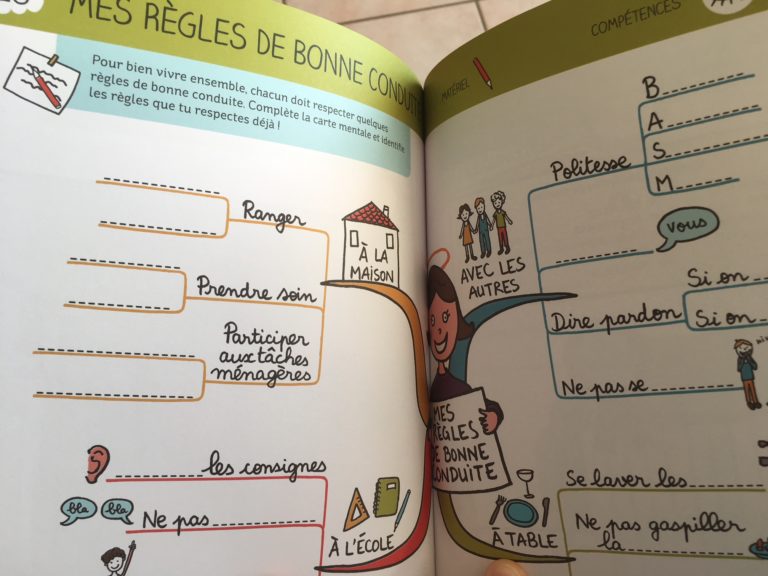 MES RÈGLES DE BONNE CONDUITE
Pour bien vivre ensemble, chacun doit respecter quelques
règles de bonne conduite. Complète la carte mentale et identifie
les règles que tu respectes déjà !
Ranger
Prendre soin
Participer
aux tâches
ménagères
À LA
MAISON
les consignes
bla bla
Ne pas
À L'ÉCOLE
COMPÉTENCES
MATÉRIEL
B
A
S
M
Politesse
vous
AVEC LES
AUTRES
Si on
Dire pardon
Si on
Ne pas se
MES
RÈGLES
DE BONNE
CONDUITE
Se laver les
Ne pas gaspiller
la
À TABLE